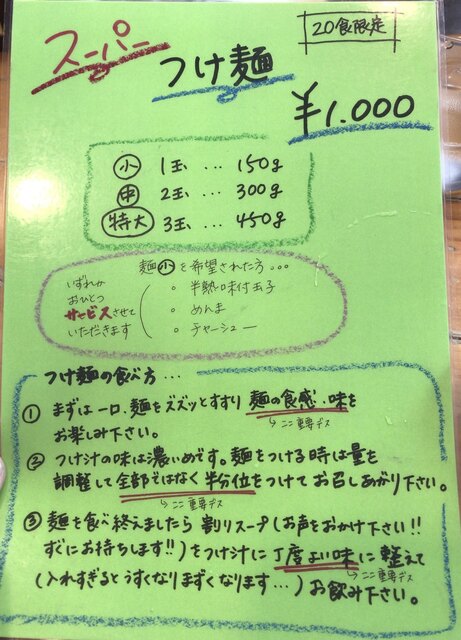 スーパー
つけ麺
20食限定
¥1.000
小 1玉 … 150g
中 2玉 … 300g
特大 3玉 … 450g
麺小を希望された方…
いずれか
おひとつ
サービスさせて
いただきます
・半熟味付玉子
・めんま
・チャーシュー
つけ麺の食べ方…
① まずは一口、麺をズズッとすすり 麺の食感、味を
お楽しみ下さい。
ここ重要デス
② つけ汁の味は濃いめです。麺をつける時は量を
調整して全部ではなく半分位をつけてお召しあがり下さい。
ここ重要デス
③ 麺を食べ終えましたら 割りスープ(お声をおかけ下さい!!
すぐにお持ちします!!)をつけ汁に丁度よい味に整えて
ここ重要デス
(入れすぎるとうすくなりまずくなります…)お飲み下さい。